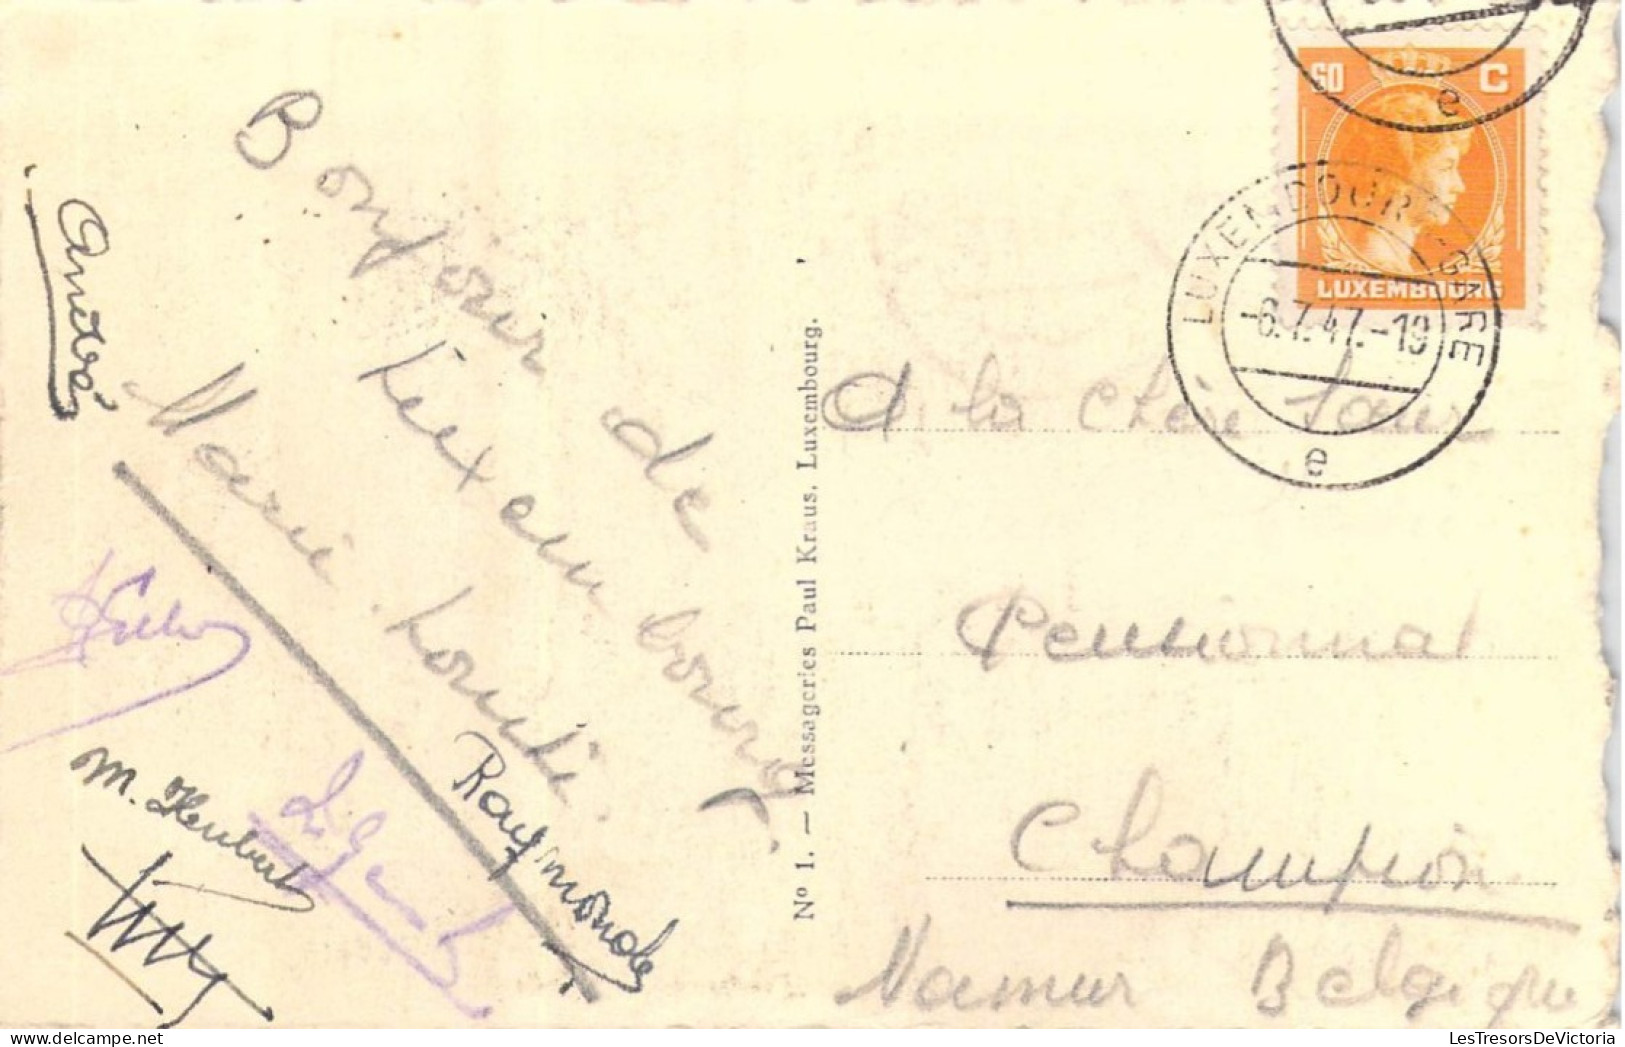 60 C
LUXEMBOURG
LUXEMBOURG-GARE
-6.7.47.-19
e
e
Bonjour de
Luxembourg
Marie Louise
Raymonde
M. Herbert
A la Chère Sœur
Pensionnat
Champion
Namur Belgique
Nº 1. — Messageries Paul Kraus, Luxembourg.
LesTresorsDeVictoria